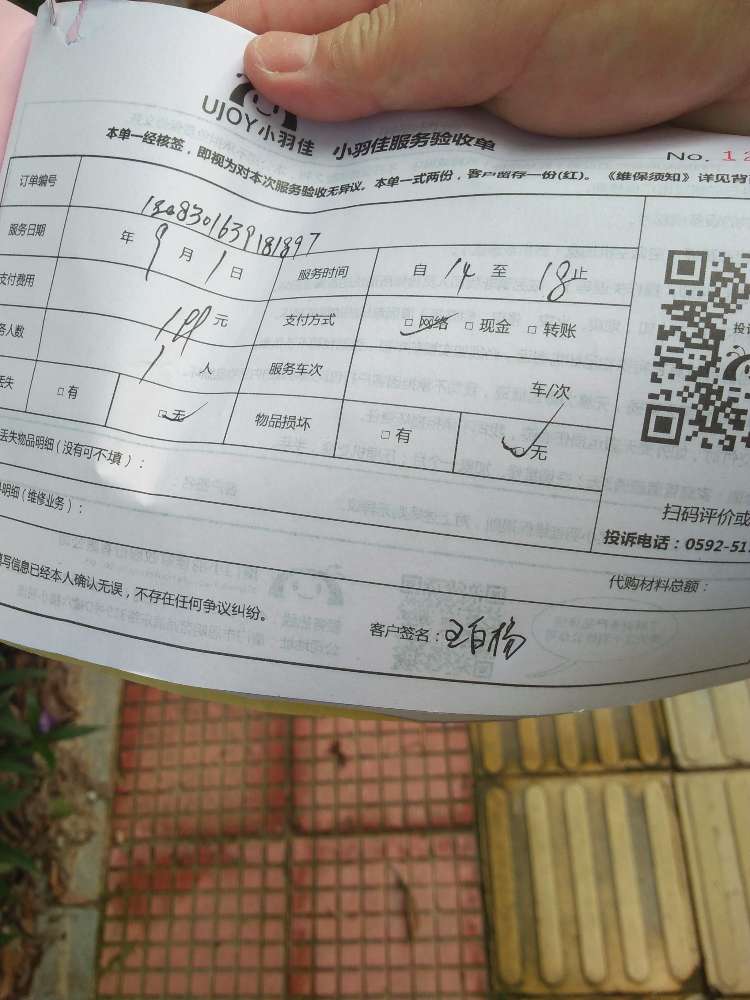 UJOY小羽佳 小羽佳服务验收单
No. 12
本单一经核签，即视为对本次服务验收无异议。本单一式两份，客户留存一份(红)。《维保须知》详见背
订单编号
服务日期 年 9 月 1 日 服务时间 自 14 至 18 止
支付费用 元 支付方式 □ 网络 □ 现金 □ 转账
务人数 1 人 服务车次 车/次
丢失 □ 有 □ 无 物品损坏 □ 有 □ 无
投诉
丢失物品明细（没有可不填）：
扫码评价或
料明细（维修业务）：
投诉电话：0592-51
代购材料总额：
填写信息已经本人确认无误，不存在任何争议纠纷。
客户签名：王白杨